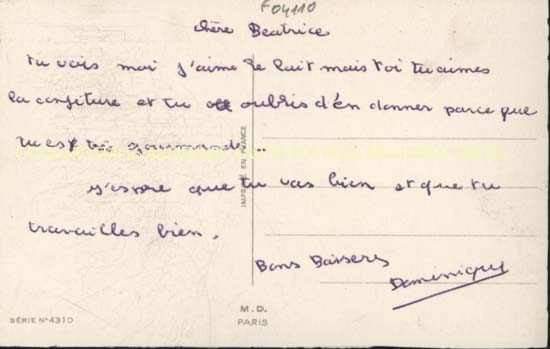 F04110
chère Beatrice
tu vois moi j'aime le lait mais toi tu aimes
la confiture et tu oublis d'en donner parce que
tu es très gourmande...
j'espere que tu vas bien et que tu
travailles bien.
Bons Baisers
Dominique
IMPRIMÉ EN FRANCE
M.D.
PARIS
SÉRIE N° 4310